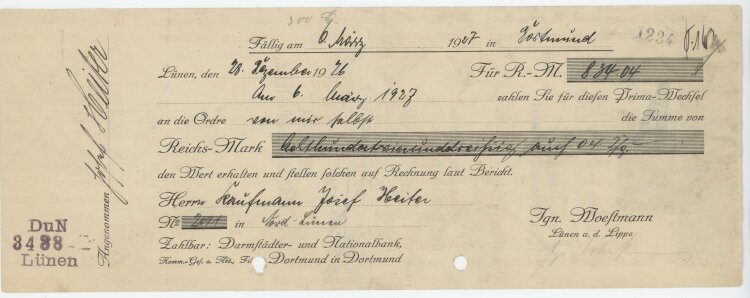 Fällig am 6 März 1927 in Dortmund
1234
Lünen, den 28. Dezember 1926 Für R.-M. 834 04
Am 6. März 1927 zahlen Sie für diesen Prima-Wechsel
an die Ordre von mir selbst die Summe von
Reichs-Mark Achthundertvierunddreissig auch 04
den Wert erhalten und stellen solchen auf Rechnung laut Bericht.
Herrn Kaufmann Josef Heiter
No in Nord Lünen
Ign. Woestmann
Lünen a. d. Lippe
Zahlbar: Darmstädter- und Nationalbank,
Komm.-Ges. a. Akt., Fil. Dortmund in Dortmund
Angenommen Josef Heiter
DuN
3488
Lünen